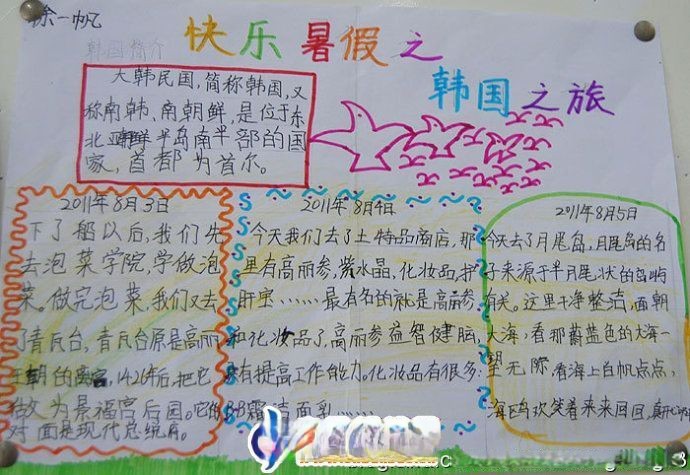 徐一帆
快乐暑假之
韩国之旅
韩国简介
大韩民国，简称韩国，又
称南韩、南朝鲜，是位于东
北亚朝鲜半岛南半部的国
家，首都为首尔。
2011年8月3日
下了船以后，我们先
去泡菜学院，学做泡
菜。做完泡菜，我们又去
了青瓦台，青瓦台原是高丽
王朝的离宫，1426年后，把它
做为景福宫后园。它的
对面是现代总统府。
2011年8月4日
今天我们去了土特品商店，那
里有高丽参，紫水晶，化妆品，护
肝宝……最有名的就是高丽参
和化妆品了，高丽参益智健脑，
有提高工作能力。化妆品有很多：
BB霜洁面乳……
2011年8月5日
今天去了月尾岛，月尾岛的名
子来源于半月尾状的岛屿
有关。这里干净整洁，面朝
大海，看那蔚蓝色的大海一
望无际，看海上白帆点点，
海鸥欢笑着来来回回，